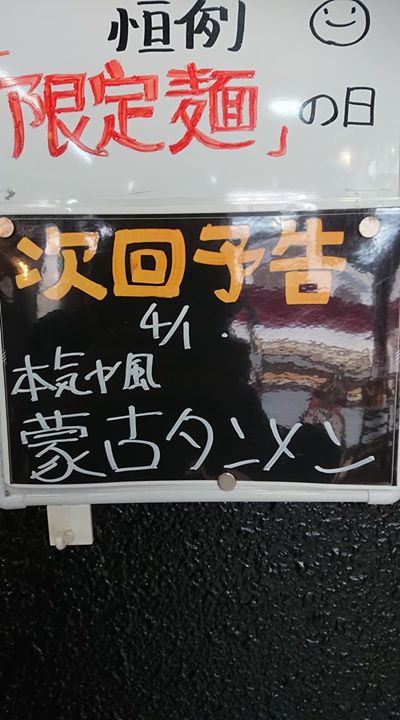 恒例
「限定麺」の日
次回予告
4/1.
本気ヤ風
蒙古タンメン